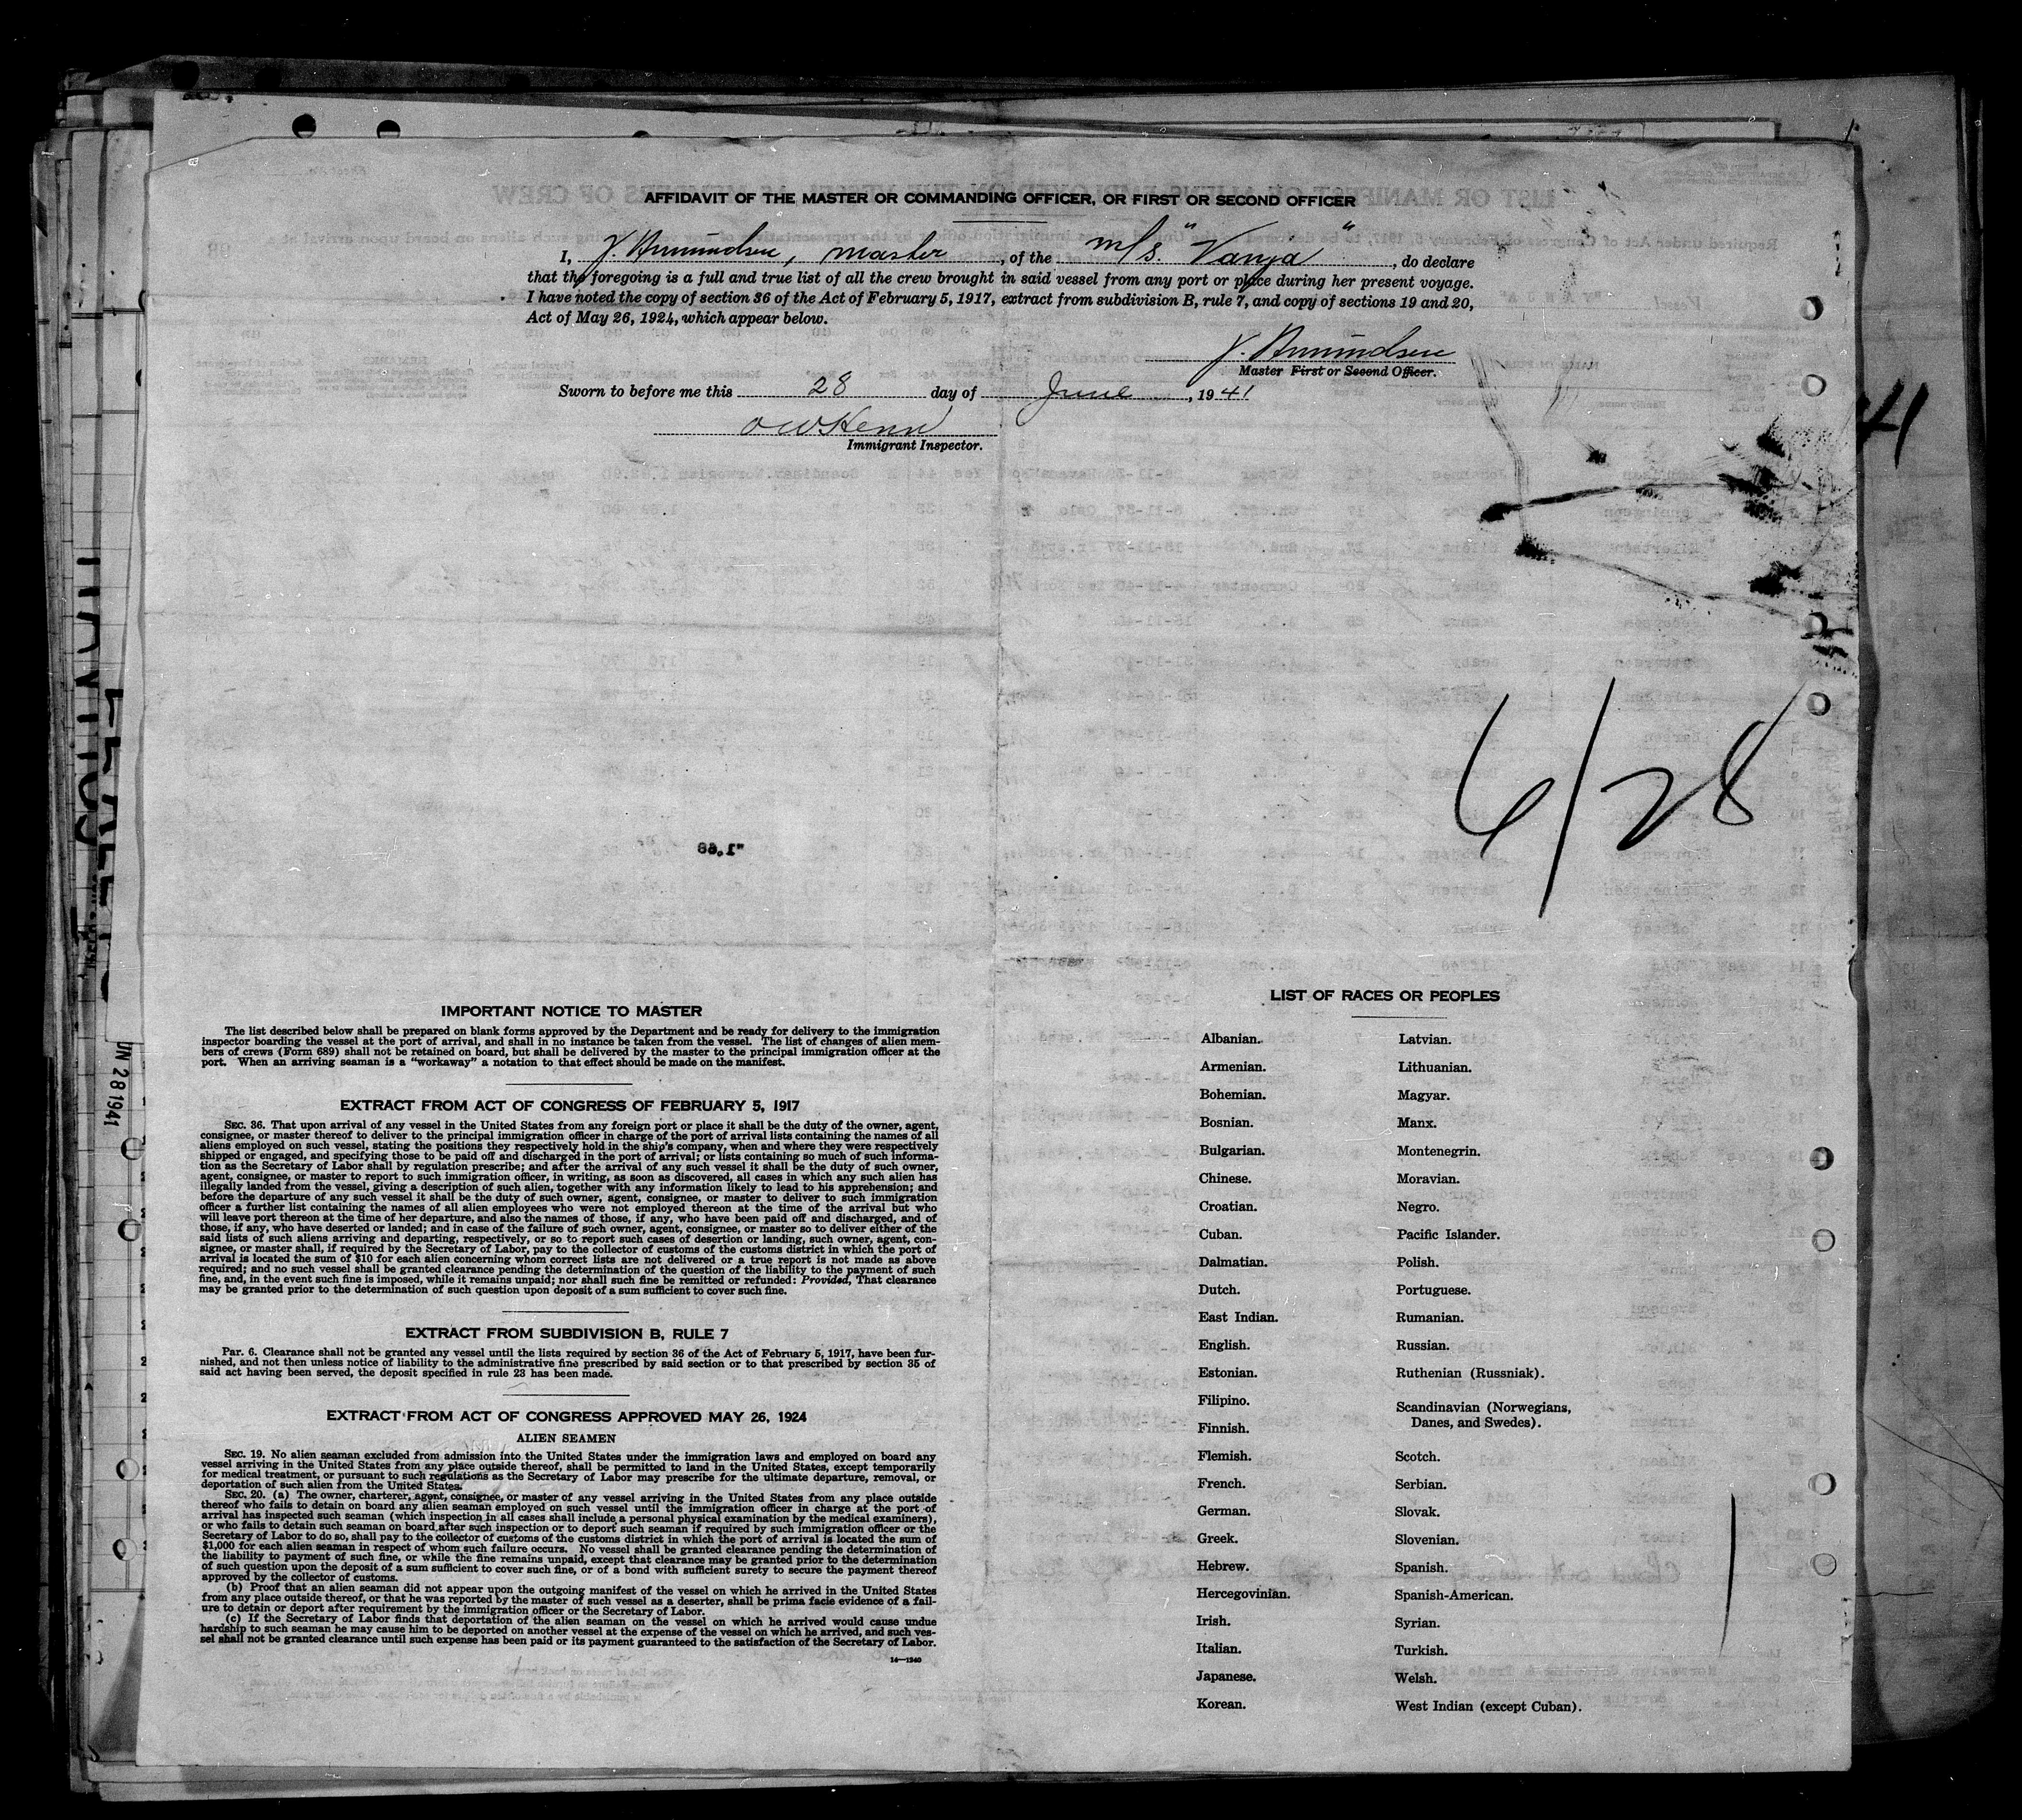 AFFIDAVIT OF THE MASTER OR COMMANDING OFFICER, OR FIRST OR SECOND OFFICER
I, J. Amundsen, master, of the m/s. "Vanja", do declare
that the foregoing is a full and true list of all the crew brought in said vessel from any port or place during her present voyage.
I have noted the copy of section 36 of the Act of February 5, 1917, extract from subdivision B, rule 7, and copy of sections 19 and 20,
Act of May 26, 1924, which appear below.
J. Amundsen
Master First or Second Officer.
Sworn to before me this 28 day of June, 1941
Immigrant Inspector.
41
6/28
"1.68
JUN 28 1941
IMPORTANT NOTICE TO MASTER
The list described below shall be prepared on blank forms approved by the Department and be ready for delivery to the immigration
inspector boarding the vessel at the port of arrival, and shall in no instance be taken from the vessel. The list of changes of alien mem-
bers of crews (Form 689) shall not be retained on board, but shall be delivered by the master to the principal immigration officer at the
port. When an arriving seaman is a "workaway" a notation to that effect should be made on the manifest.
EXTRACT FROM ACT OF CONGRESS OF FEBRUARY 5, 1917
SEC. 36. That upon arrival of any vessel in the United States from any foreign port or place it shall be the duty of the owner, agent,
consignee, or master thereof to deliver to the principal immigration officer in charge of the port of arrival lists containing the names of all
aliens employed on such vessel, stating the positions they respectively hold in the ship's company, when and where they were respectively
shipped or engaged, and specifying those to be paid off and discharged in the port of arrival; or lists containing so much of such informa-
tion as the Secretary of Labor shall by regulation prescribe; and after the arrival of any such vessel it shall be the duty of such owner,
agent, consignee, or master to report to such immigration officer, in writing, as soon as discovered, all cases in which any such alien has
illegally landed from the vessel, giving a description of such alien, together with any information likely to lead to his apprehension; and
before the departure of any such vessel it shall be the duty of such owner, agent, consignee, or master to deliver to such immigration
officer a further list containing the names of all alien employees who were not employed thereon at the time of the arrival but who
will leave port thereon at the time of her departure, and also the names of those, if any, who have been paid off and discharged, and of
those, if any, who have deserted or landed; and in case of the failure of such owner, agent, consignee, or master so to deliver either of the
said lists of such aliens arriving and departing, respectively, or so to report such cases of desertion or landing, such owner, agent, con-
signee, or master shall, if required by the Secretary of Labor, pay to the collector of customs of the customs district in which the port of
arrival is located the sum of $10 for each alien concerning whom correct lists are not delivered or a true report is not made as above
required; and no such vessel shall be granted clearance pending the determination of the question of the liability to the payment of such
fine, and, in the event such fine is imposed, while it remains unpaid; nor shall such fine be remitted or refunded: Provided, That clearance
may be granted prior to the determination of such question upon deposit of a sum sufficient to cover such fine.
EXTRACT FROM SUBDIVISION B, RULE 7
PAR. 6. Clearance shall not be granted any vessel until the lists required by section 36 of the Act of February 5, 1917, have been fur-
nished, and not then unless notice of liability to the administrative fine prescribed by said section or to that prescribed by section 35 of
said act having been served, the deposit specified in rule 23 has been made.
EXTRACT FROM ACT OF CONGRESS APPROVED MAY 26, 1924
ALIEN SEAMEN
SEC. 19. No alien seaman excluded from admission into the United States under the immigration laws and employed on board any
vessel arriving in the United States from any place outside thereof, shall be permitted to land in the United States, except temporarily
for medical treatment, or pursuant to such regulations as the Secretary of Labor may prescribe for the ultimate departure, removal, or
deportation of such alien from the United States.
SEC. 20. (a) The owner, charterer, agent, consignee, or master of any vessel arriving in the United States from any place outside
thereof who fails to detain on board any alien seaman employed on such vessel until the immigration officer in charge at the port of
arrival has inspected such seaman (which inspection in all cases shall include a personal physical examination by the medical examiners),
or who fails to detain such seaman on board after such inspection or to deport such seaman if required by such immigration officer or the
Secretary of Labor to do so, shall pay to the collector of customs of the customs district in which the port of arrival is located the sum of
$1,000 for each alien seaman in respect of whom such failure occurs. No vessel shall be granted clearance pending the determination of
the liability to payment of such fine, or while the fine remains unpaid, except that clearance may be granted prior to the determination
of such question upon the deposit of a sum sufficient to cover such fine, or of a bond with sufficient surety to secure the payment thereof
approved by the collector of customs.
(b) Proof that an alien seaman did not appear upon the outgoing manifest of the vessel on which he arrived in the United States
from any place outside thereof, or that he was reported by the master of such vessel as a deserter, shall be prima facie evidence of a fail-
ure to detain or deport after requirement by the immigration officer or the Secretary of Labor.
(c) If the Secretary of Labor finds that deportation of the alien seaman on the vessel on which he arrived would cause undue
hardship to such seaman he may cause him to be deported on another vessel at the expense of the vessel on which he arrived, and such ves-
sel shall not be granted clearance until such expense has been paid or its payment guaranteed to the satisfaction of the Secretary of Labor.
14—1240
LIST OF RACES OR PEOPLES
Albanian.
Armenian.
Bohemian.
Bosnian.
Bulgarian.
Chinese.
Croatian.
Cuban.
Dalmatian.
Dutch.
East Indian.
English.
Estonian.
Filipino.
Finnish.
Flemish.
French.
German.
Greek.
Hebrew.
Hercegovinian.
Irish.
Italian.
Japanese.
Korean.
Latvian.
Lithuanian.
Magyar.
Manx.
Montenegrin.
Moravian.
Negro.
Pacific Islander.
Polish.
Portuguese.
Rumanian.
Russian.
Ruthenian (Russniak).
Scandinavian (Norwegians,
Danes, and Swedes).
Scotch.
Serbian.
Slovak.
Slovenian.
Spanish.
Spanish-American.
Syrian.
Turkish.
Welsh.
West Indian (except Cuban).